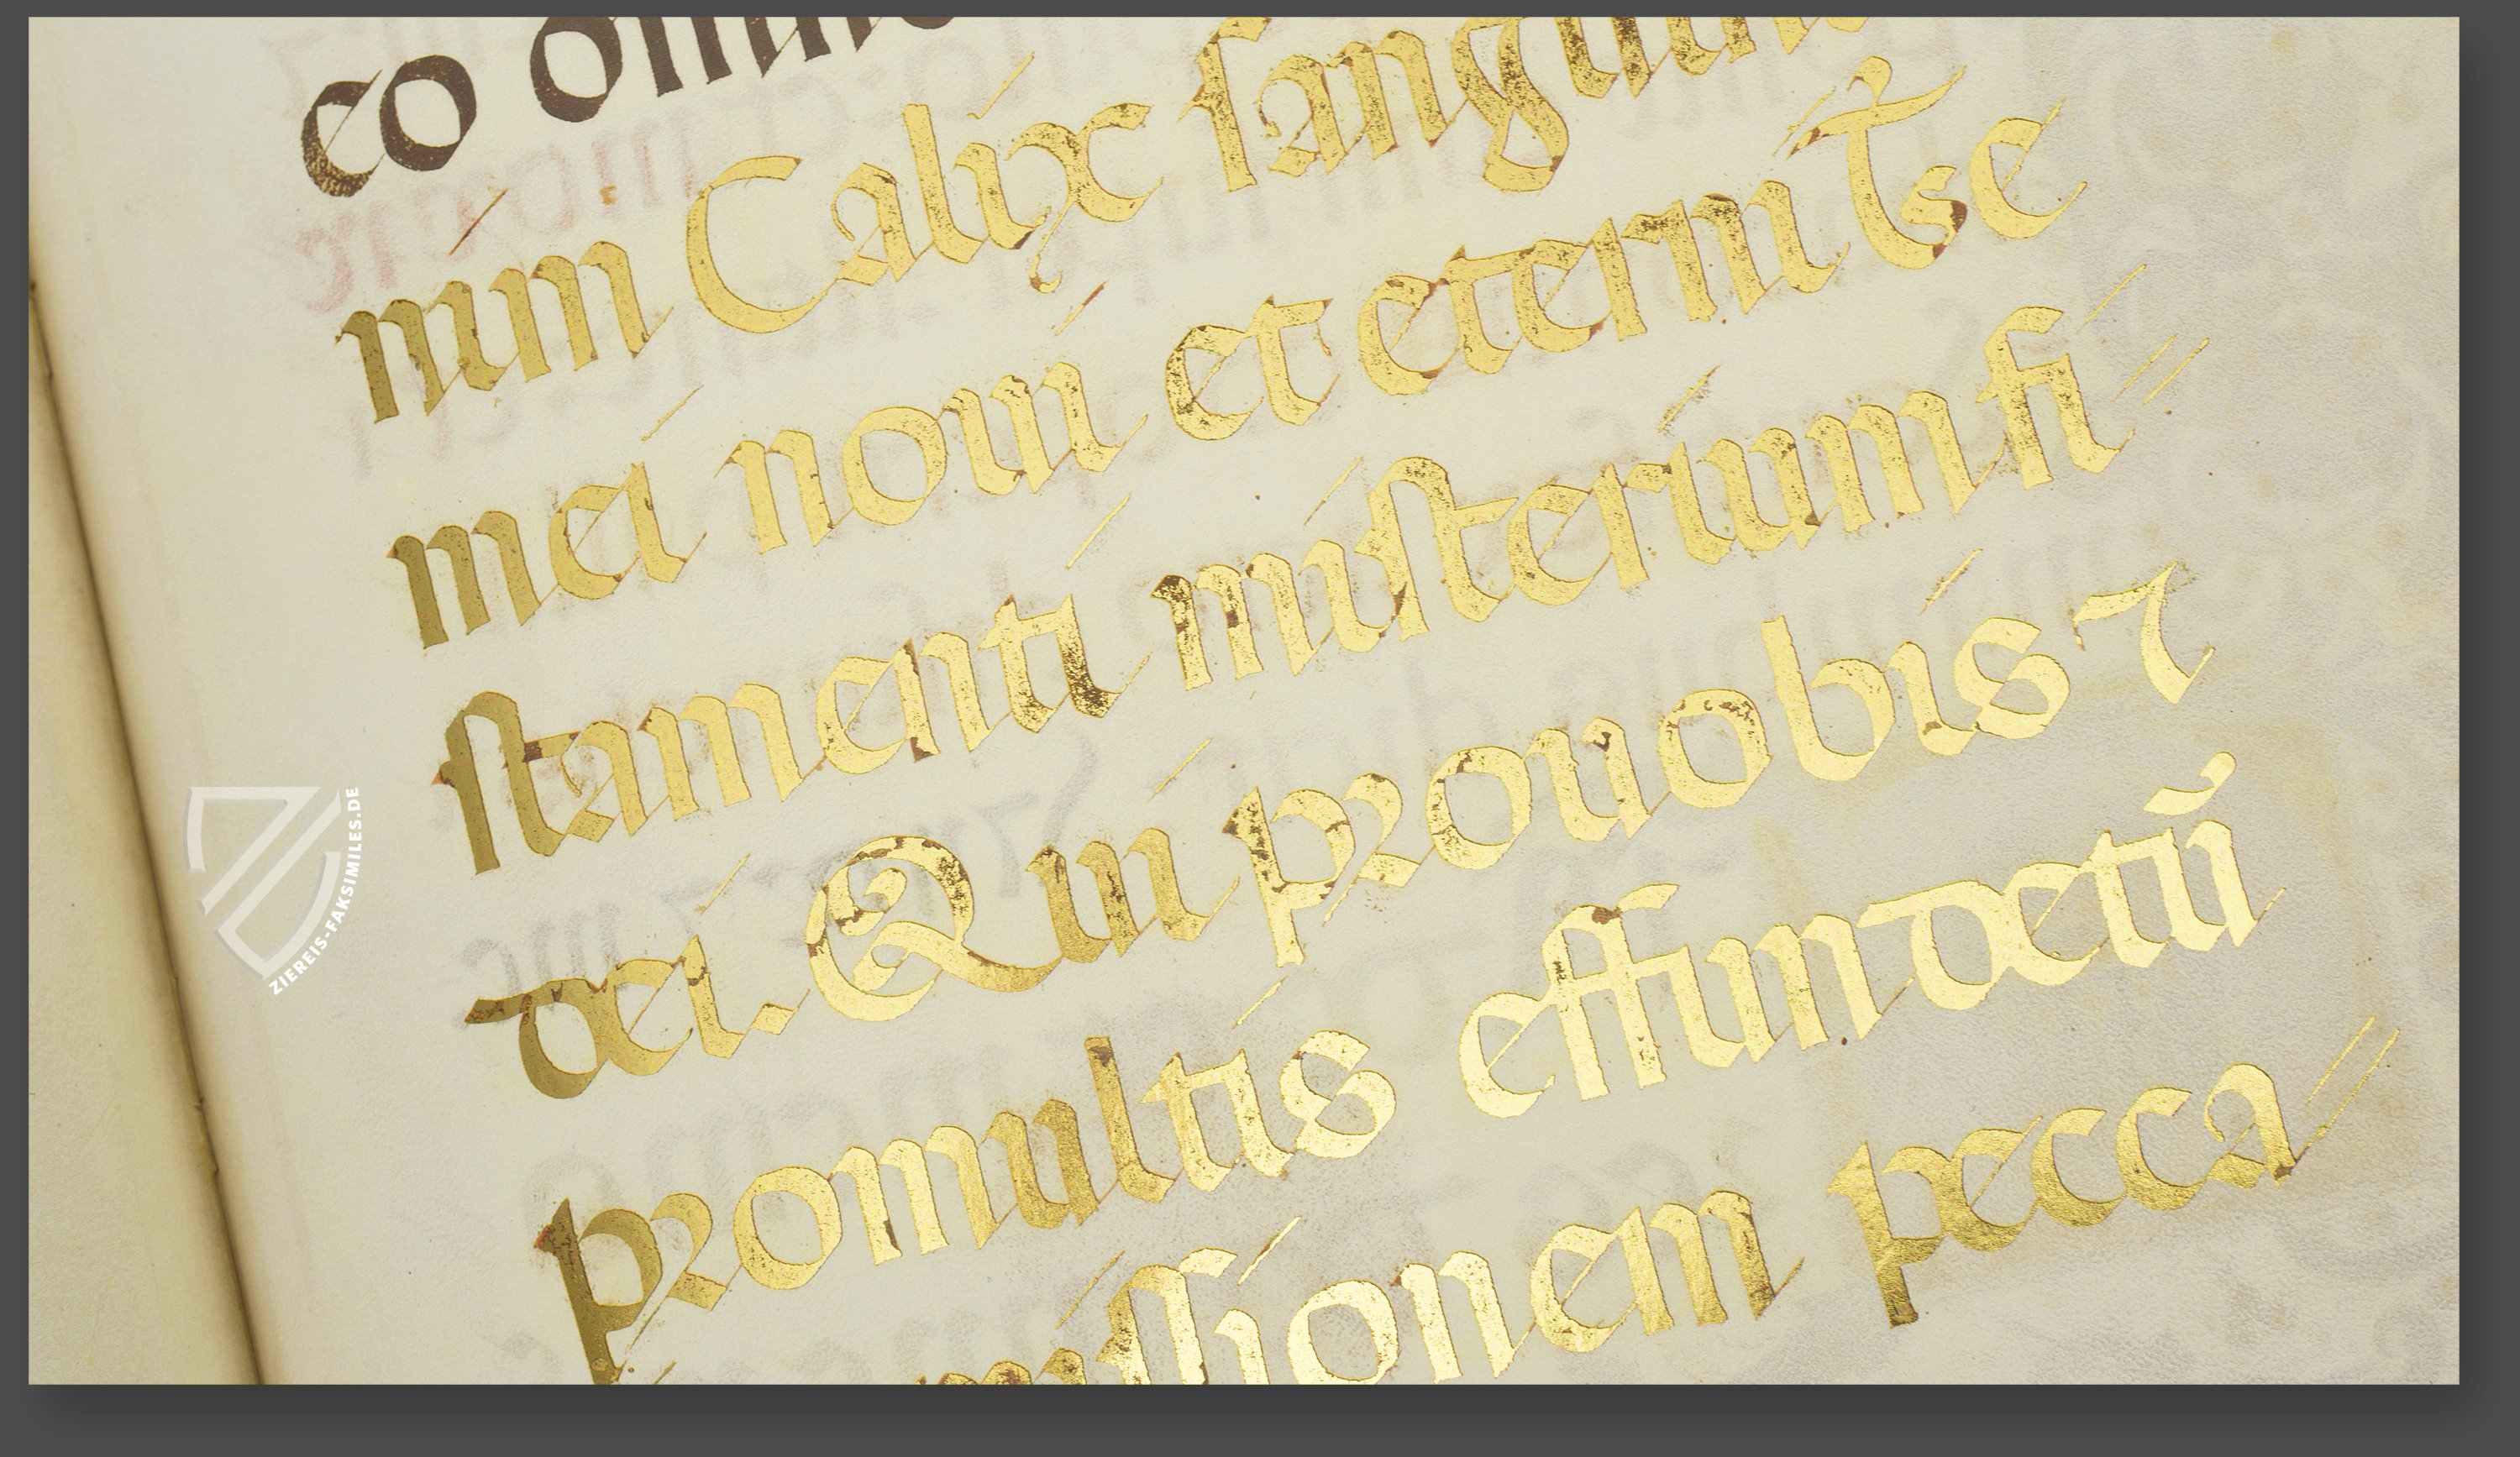 co omnis
nim Calix sanguinis
mei noui et eterni te
stamenti misterium fi
dei. Qui pro uobis ⁊
pro multis effundetũ
missionem pecca
ZIEREIS-FAKSIMILES.DE